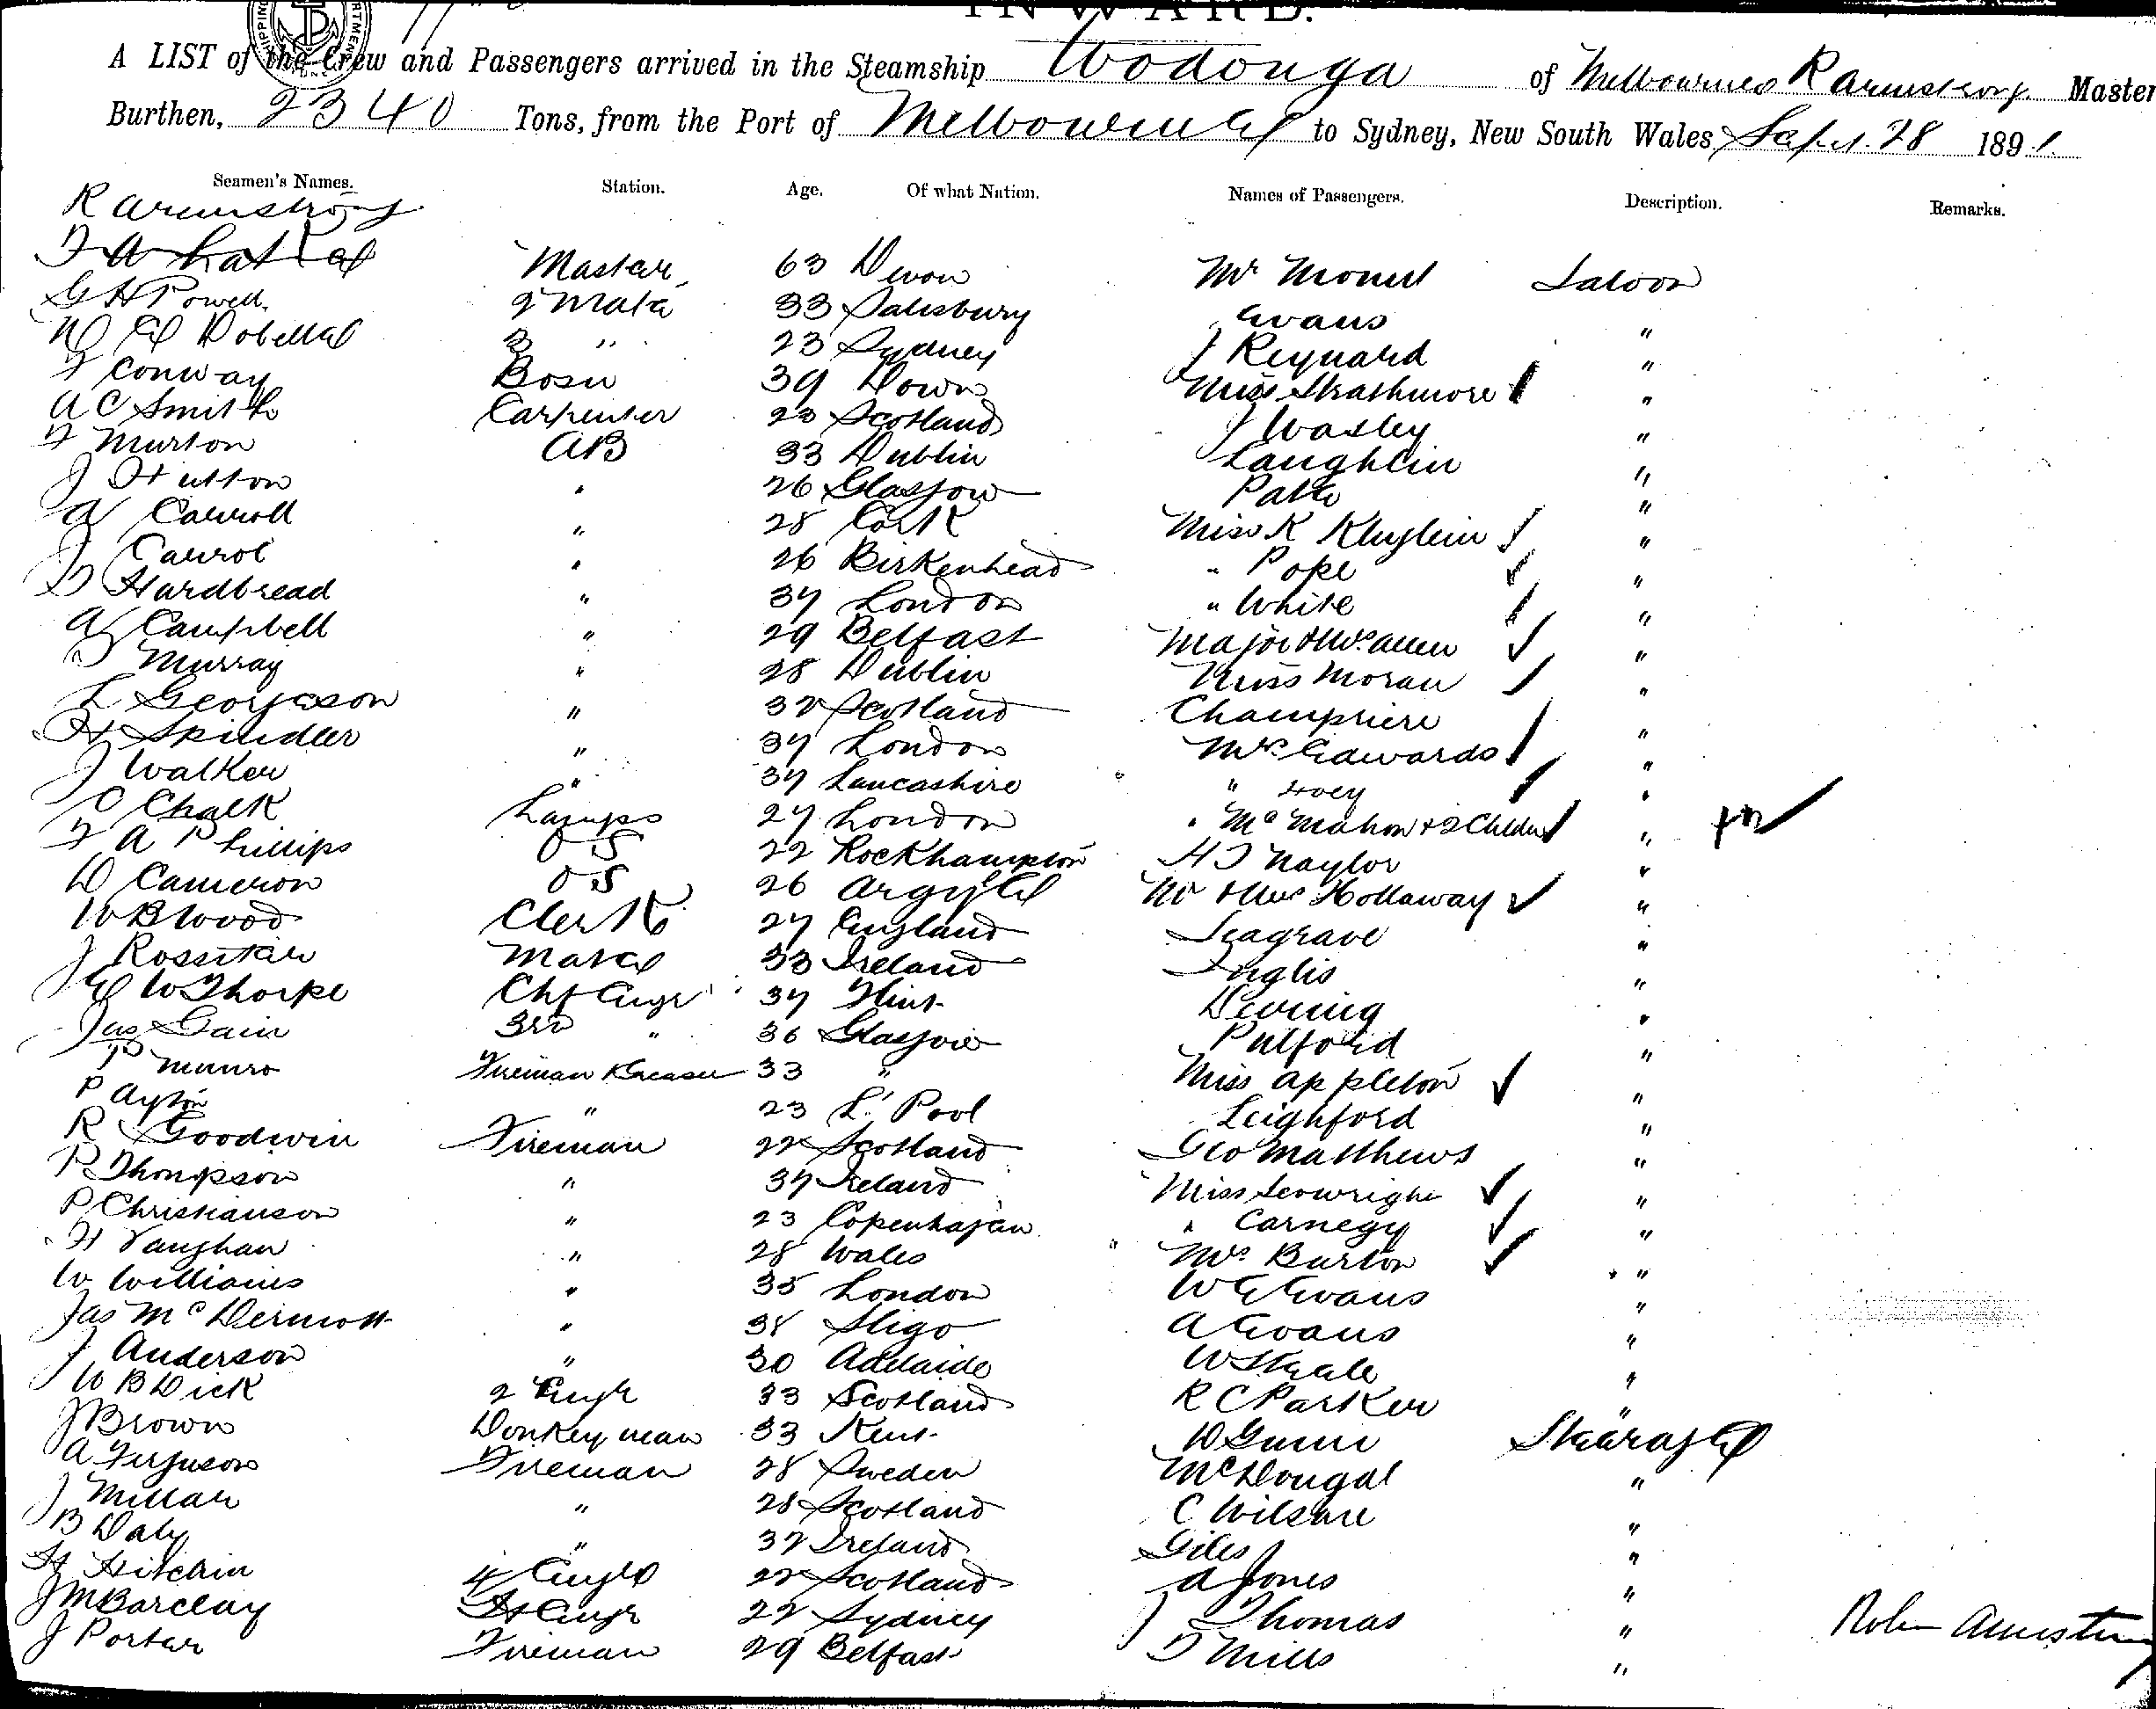 INWARD.
A LIST of the Crew and Passengers arrived in the Steamship Wodonga of Melbourne R Armstrong Master
Burthen, 2340 Tons, from the Port of Melbourne to Sydney, New South Wales, Sept. 28 1891.
Seamen's Names. Station. Age. Of what Nation. Names of Passengers. Description. Remarks.
R Armstrong Master 63 Devon Mr Saloon
G H Powell 2 Mate 33 Salisbury Evans "
3 " 23 Sydney J Reynard "
F Conway Bosn 39 Down Miss Strathmore "
A C Smith Carpenter 23 Scotland J Wasley "
F Murton AB 33 Dublin Laughlin "
J Hutton " 26 Glasgow "
A Carroll " 28 Cork Miss K "
J Carrol " 26 Birkenhead " Pope "
T Hardbread " 37 London " White "
A Campbell " 29 Belfast Major & Mrs Allen "
Murray " 28 Dublin Miss Moran "
L Georgeson " 32 Scotland "
H Spindler " 37 London Mrs Edwards "
J Walker " 37 Lancashire " Hoey "
C Chalk Lamps 27 London " McMahon & 2 Childn "
F A Phillips O S 22 Rockhampton H J Naylor "
D Cameron O S 26 Argyle Mr & Mrs Hollaway "
W B Wood Clerk 27 England Seagrave "
J Rossiter Mate 33 Ireland Inglis "
E W Thorpe Chf Engr 37 Flint "
Jas Gain 3rd " 36 Glasgow Pulford "
P Munro Fireman & Greaser 33 " Miss Appleton "
P Ayton " 23 L'Pool Leighford "
R Goodwin Fireman 22 Scotland Geo Matthews "
P Thompson " 37 Ireland Miss "
P Christianson " 23 Copenhagen " Carnegy "
H Vaughan " 28 Wales Mrs Burton "
W Williams " 35 London W E Evans "
Jas McDermott " 38 Sligo A Evans "
J Anderson " 30 Adelaide "
W B Dick 2 Engr 33 Scotland R C Parker "
J Brown Donkeyman 33 Kent W Gunn Steerage
A Ferguson Fireman 28 Sweden McDougal "
J Millar " 28 Scotland C "
B Daly " 32 Ireland Giles "
H Hitchin 4 Engr 22 Scotland A Jones "
J M Barclay 22 Sydney J Thomas "
J Porter Fireman 29 Belfast T Mills "